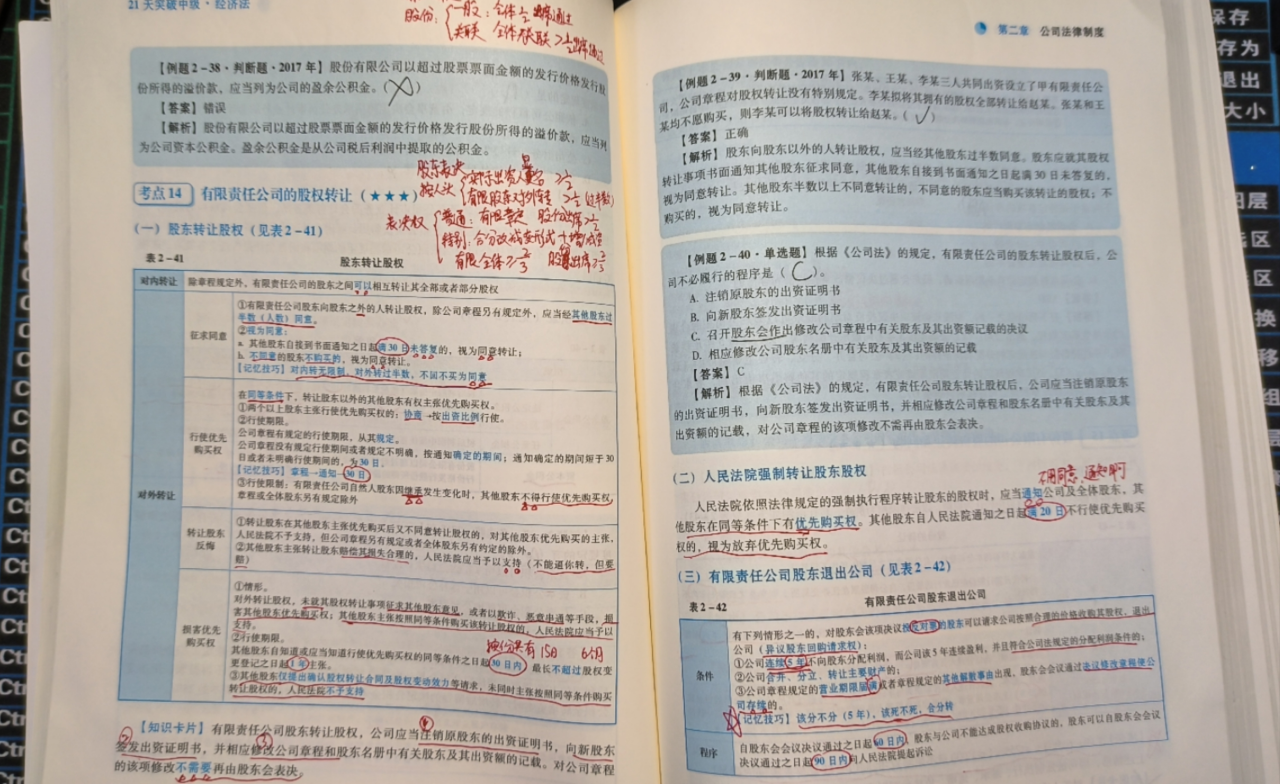 21天突破中级·经济法
股份：一般：全体1/2出席通过
【例题2-38·判断题·2017年】股份有限公司以超过股票票面金额的发行价格发行股
份所得的溢价款，应当列为公司的盈余公积金。（×）
【答案】错误
【解析】股份有限公司以超过股票票面金额的发行价格发行股份所得的溢价款，应当列
为公司资本公积金。盈余公积金是从公司税后利润中提取的公积金。
股东表决
按人头
考点14 有限责任公司的股权转让（★★★）
表决权
（一）股东转让股权（见表2-41）
表2-41 股东转让股权
对内转让 除章程规定外，有限责任公司的股东之间可以相互转让其全部或者部分股权
对外转让
征求同意
①有限责任公司股东向股东之外的人转让股权，除公司章程另有规定外，应当经其他股东过
半数（人数）同意。
②视为同意：
a. 其他股东自接到书面通知之日起满30日未答复的，视为同意转让；
b. 不同意的股东不购买的，视为同意转让。
【记忆技巧】对内转无限制，对外转过半数，不回不买为同意
行使优先
购买权
在同等条件下，转让股东以外的其他股东有权主张优先购买权。
①两个以上股东主张行使优先购买权的：协商→按出资比例行使。
②行使期限。
公司章程有规定的行使期限，从其规定。
公司章程没有规定行使期间或者规定不明确，按通知确定的期间；通知确定的期间短于30
日或者未明确行使期间的，为30日。
【记忆技巧】章程→通知→30日
③行使限制：有限责任公司自然人股东因继承发生变化时，其他股东不得行使优先购买权，
章程或全体股东另有规定除外
转让股东
反悔
①转让股东在其他股东主张优先购买后又不同意转让股权的，对其他股东优先购买的主张，
人民法院不予支持，但公司章程另有规定或者全体股东另有约定的除外。
②其他股东主张转让股东赔偿其损失合理的，人民法院应当予以支持（不能逼你转，但要
赔）
损害优先
购买权
①情形。
对外转让股权，未就其股权转让事项征求其他股东意见，或者以欺诈、恶意串通等手段，损
害其他股东优先购买权；其他股东主张按照同等条件购买该转让股权的，人民法院应当予以
支持。
②行使期限。
其他股东自知道或应当知道行使优先购买权的同等条件之日起30日内，最长不超过股权变
更登记之日起1年主张。
③其他股东仅提出确认股权转让合同及股权变动效力等请求，未同时主张按照同等条件购买
转让股权的，人民法院不予支持
【知识卡片】有限责任公司股东转让股权，公司应当注销原股东的出资证明书，向新股东
签发出资证明书，并相应修改公司章程和股东名册中有关股东及其出资额的记载。对公司章程
的该项修改不需要再由股东会表决。
第二章 公司法律制度
【例题2-39·判断题·2017年】张某、王某、李某三人共同出资设立了甲有限责任公
司，公司章程对股权转让没有特别规定。李某拟将其拥有的股权全部转让给赵某。张某和王
某均不愿购买，则李某可以将股权转让给赵某。（√）
【答案】正确
【解析】股东向股东以外的人转让股权，应当经其他股东过半数同意。股东应就其股权
转让事项书面通知其他股东征求同意，其他股东自接到书面通知之日起满30日未答复的，
视为同意转让。其他股东半数以上不同意转让的，不同意的股东应当购买该转让的股权；不
购买的，视为同意转让。
【例题2-40·单选题】根据《公司法》的规定，有限责任公司的股东转让股权后，公
司不必履行的程序是（C）。
A. 注销原股东的出资证明书
B. 向新股东签发出资证明书
C. 召开股东会作出修改公司章程中有关股东及其出资额记载的决议
D. 相应修改公司股东名册中有关股东及其出资额的记载
【答案】C
【解析】根据《公司法》的规定，有限责任公司股东转让股权后，公司应当注销原股东
的出资证明书，向新股东签发出资证明书，并相应修改公司章程和股东名册中有关股东及其
出资额的记载，对公司章程的该项修改不需再由股东会表决。
（二）人民法院强制转让股东股权
不用同意，通知即可
人民法院依照法律规定的强制执行程序转让股东的股权时，应当通知公司及全体股东，其
他股东在同等条件下有优先购买权。其他股东自人民法院通知之日起满20日不行使优先购买
权的，视为放弃优先购买权。
（三）有限责任公司股东退出公司（见表2-42）
表2-42 有限责任公司股东退出公司
条件
有下列情形之一的，对股东会该项决议投反对票的股东可以请求公司按照合理的价格收购其股权，退出
公司（异议股东回购请求权）：
①公司连续5年不向股东分配利润，而公司该5年连续盈利，并且符合公司法规定的分配利润条件的；
②公司合并、分立、转让主要财产的；
③公司章程规定的营业期限届满或者章程规定的其他解散事由出现，股东会会议通过决议修改章程使公
司存续的。
【记忆技巧】该分不分（5年），该死不死，合分转
程序
自股东会会议决议通过之日起60日内，股东与公司不能达成股权收购协议的，股东可以自股东会会议
决议通过之日起90日内向人民法院提起诉讼
保存
存为
退出
大小